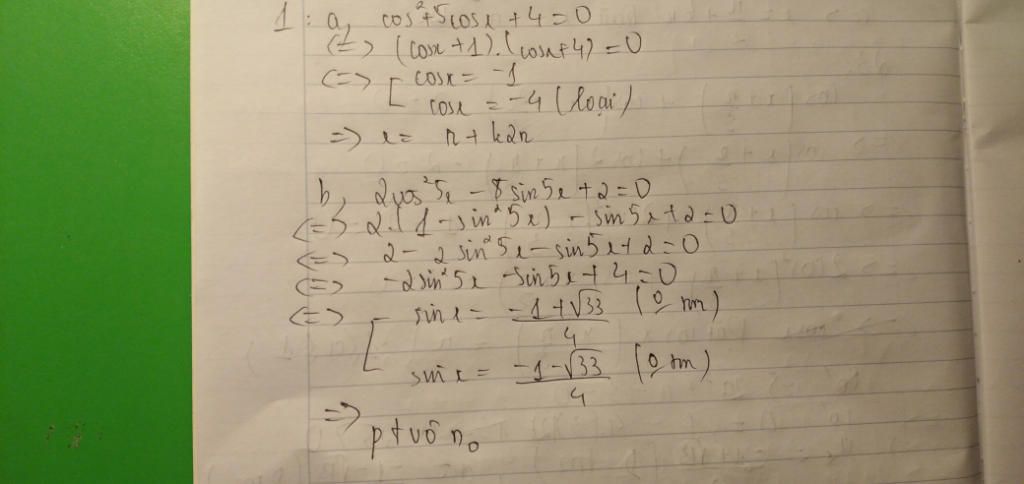 1: a, cos²+5cosx + 4 = 0
<=> (cosx + 1).(cosx+4) = 0
<=> [ cosx = -1
cosx = -4 (loại)
=> x = π + k2π
b, 2cos²5x - 8sin5x + 2 = 0
<=> 2.(1 - sin²5x) - sin5x + 2 = 0
<=> 2 - 2sin²5x - sin5x + 2 = 0
<=> -2sin²5x - sin5x + 4 = 0
<=> [ sinx = (-1+√33)/4
sinx = (-1-√33)/4
=> pt vô no